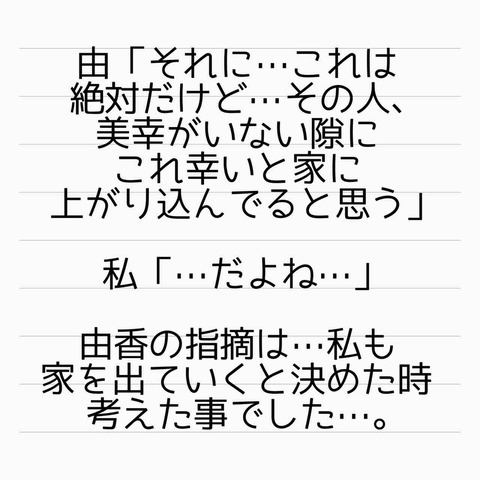 由「それに…これは
絶対だけど…その人、
美幸がいない隙に
これ幸いと家に
上がり込んでると思う」
私「…だよね…」
由香の指摘は…私も
家を出ていくと決めた時
考えた事でした…。